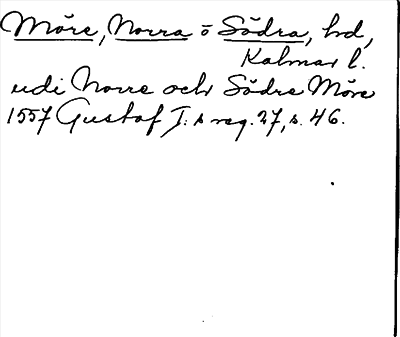 Möre, Norra o Södra, hd,
Kalmar l.
udi Norre och Södre Möre
1557 Gustaf I:s reg. 27, s. 46.